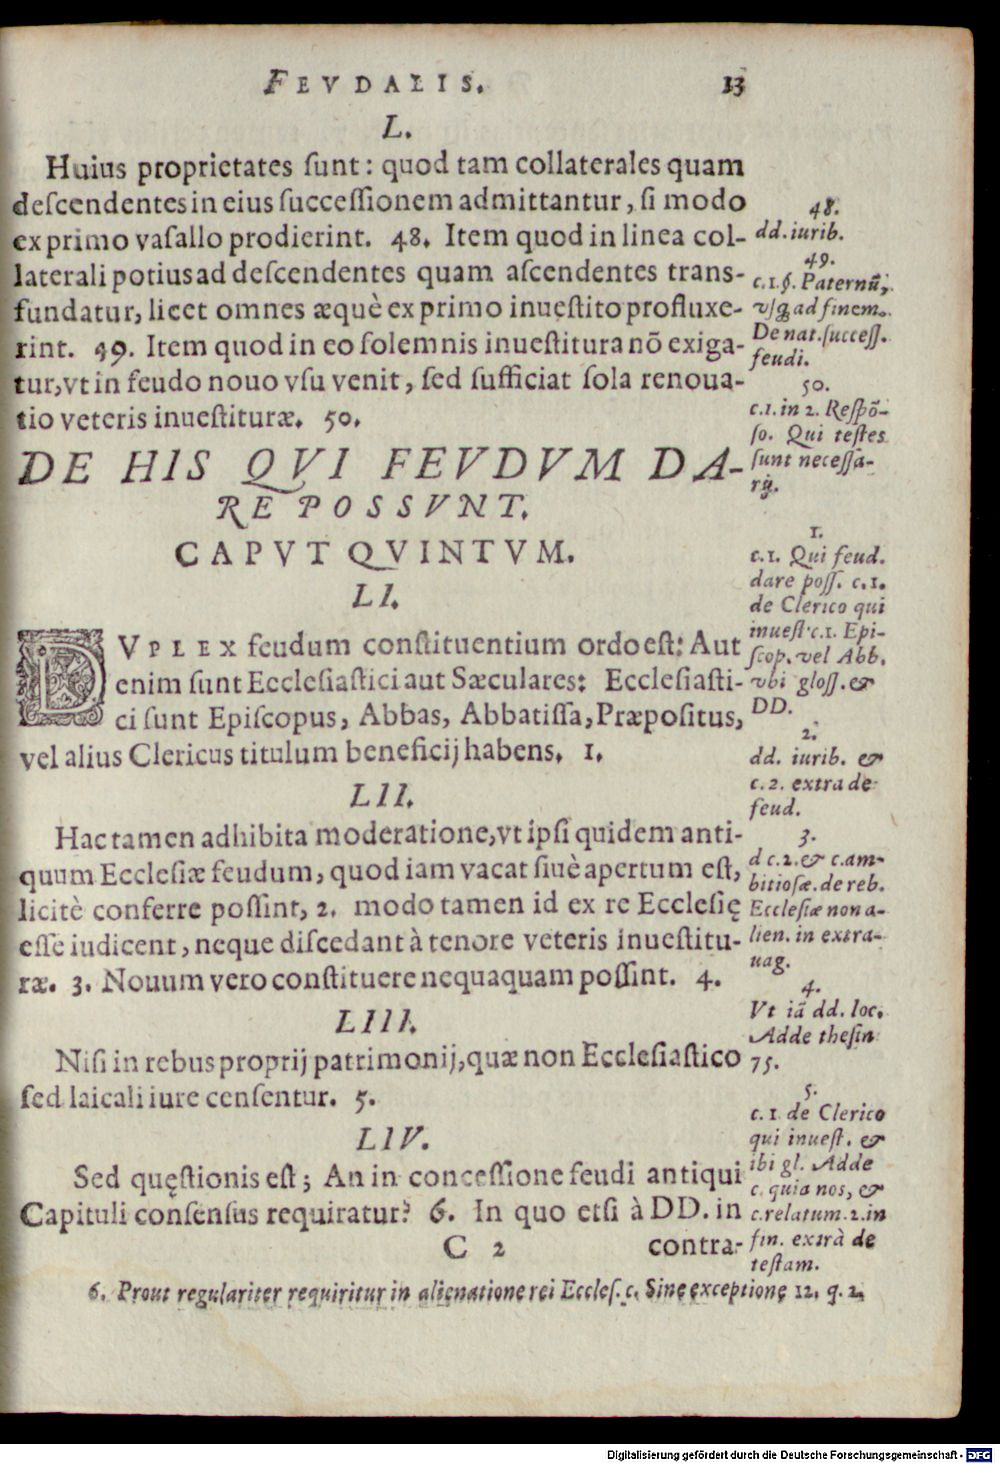 FEVDALIS. 13
L.
Huius proprietates sunt: quod tam collaterales quam
descendentes in eius successionem admittantur, si modo
ex primo vasallo prodierint. 48. Item quod in linea col-
laterali potius ad descendentes quam ascendentes trans-
fundatur, licet omnes æquè ex primo inuestito profluxe-
rint. 49. Item quod in eo solemnis inuestitura nō exiga-
tur, vt in feudo nouo vsu venit, sed sufficiat sola renoua-
tio veteris inuestituræ. 50.
48.
dd. iurib.
49.
c. 1. §. Paternū,
vsq; ad finem.
De nat. success.
feudi.
50.
c. 1. in 2. Respō-
so. Qui testes
sunt necessa-
rij.
DE HIS QVI FEVDVM DA-
RE POSSVNT.
CAPVT QVINTVM.
LI.
DVPLEX feudum constituentium ordo est: Aut
enim sunt Ecclesiastici aut Sæculares: Ecclesiasti-
ci sunt Episcopus, Abbas, Abbatissa, Præpositus,
vel alius Clericus titulum beneficij habens. 1.
1.
c. 1. Qui feud.
dare poss. c. 1.
de Clerico qui
inuest. c. 1. Epi-
scop. vel Abb.
vbi gloss. &
DD.
LII.
Hac tamen adhibita moderatione, vt ipsi quidem anti-
quum Ecclesiæ feudum, quod iam vacat siuè apertum est,
licitè conferre possint, 2. modo tamen id ex re Ecclesię
esse iudicent, neque discedant à tenore veteris inuestitu-
ræ. 3. Nouum vero constituere nequaquam possint. 4.
2.
dd. iurib. &
c. 2. extra de
feud.
3.
d c. 2. & c. am-
bitiosæ. de reb.
Ecclesiæ non a-
lien. in extra-
uag.
4.
Vt iā dd. loc.
Adde thesin
75.
LIII.
Nisi in rebus proprij patrimonij, quæ non Ecclesiastico
sed laicali iure censentur. 5.
5.
c. 1 de Clerico
qui inuest. &
ibi gl. Adde
c. quia nos, &
c. relatum. 2. in
fin. extrà de
testam.
LIV.
Sed quęstionis est; An in concessione feudi antiqui
Capituli consensus requiratur? 6. In quo etsi à DD. in
C 2 contra-
6. Prout regulariter requiritur in alienatione rei Eccles. c. Sine exceptione 12. q. 2.
Digitalisierung gefördert durch die Deutsche Forschungsgemeinschaft - DFG